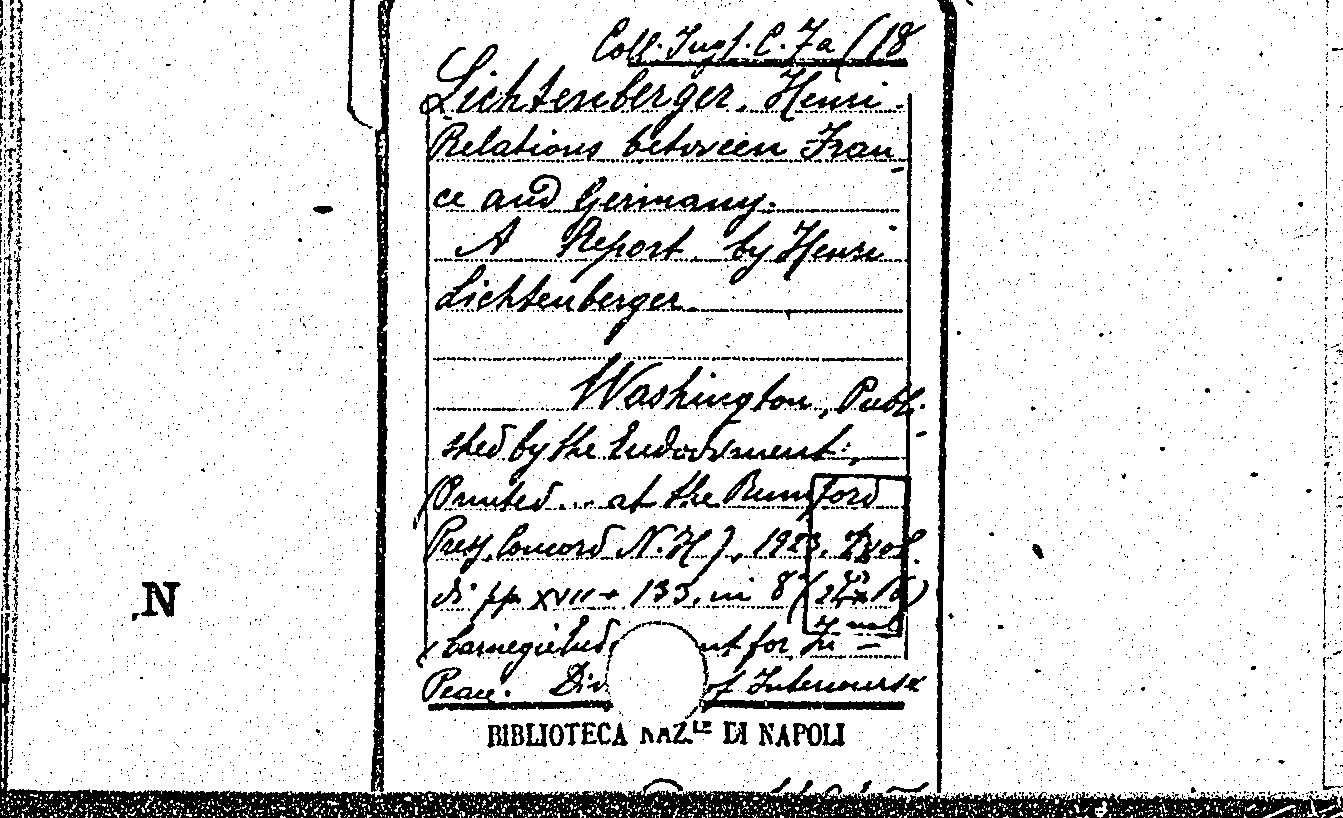 Coll. Ingl. C. 7a / 18
Lichtenberger, Henri.
Relations between Fran-
ce and Germany.
A Report by Henri
Lichtenberger.
Washington, Publi-
shed by the Endowment:,
(Printed ... at the Rumford
Press, Concord N. H.), 1923.
di pp. XVII + 133, in 8°
(Carnegie Endo nt for
Peace. Div of Intercourse
BIBLIOTECA NAZ.LE DI NAPOLI
N